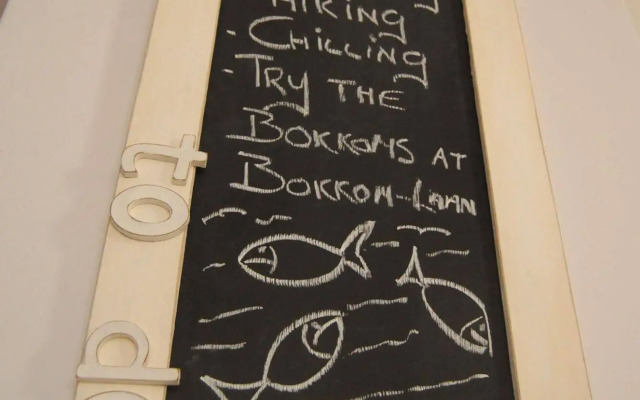 HIKING
· CHILLING
· TRY THE
BOKKOMS AT
BOKKOM-LAAN
to